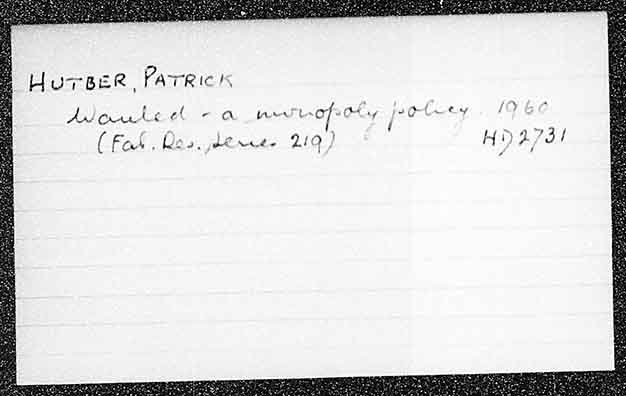 HUTBER, PATRICK
Wanted - a monopoly policy. 1960
(Fab. Res. Series 219) HD2731